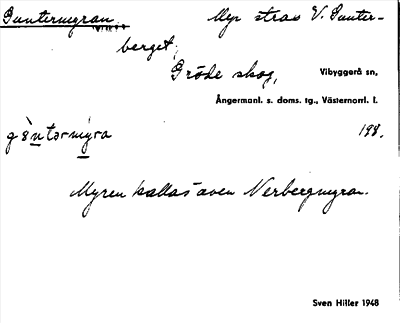 Guntermyran Myr strax V. Gunter-
berget,
Gröde skog, Vibyggerå sn,
Ångermanl. s. doms. tg., Västernorrl. l.
198.
Myren kallas även Nerbergmyran.
Sven Hiller 1948